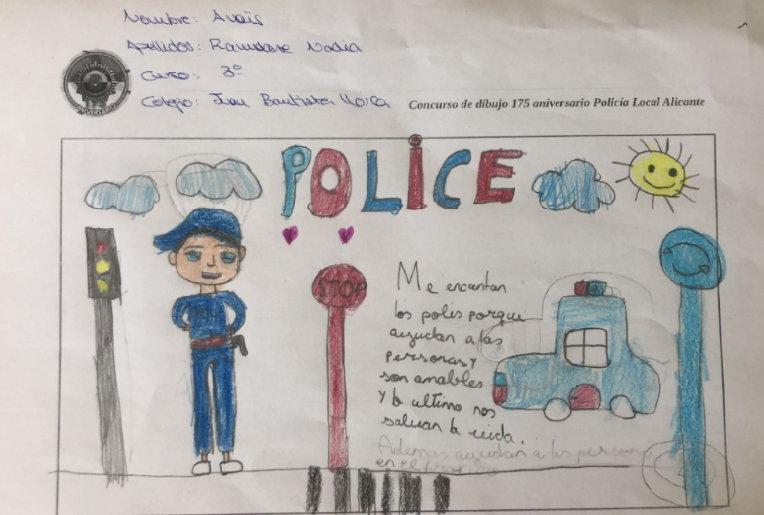 Nombre: Anaïs
Apellidos: Ramdane Nadia
Curso: 3º
Colegio: Juan Bautista Llorca
Concurso de dibujo 175 aniversario Policía Local Alicante
POLICE
STOP
Me encantan
los polis porque
ayudan a las
personas y
son amables
y lo ultimo nos
salvan la vida.
Ademas ayudan a las persona
en el